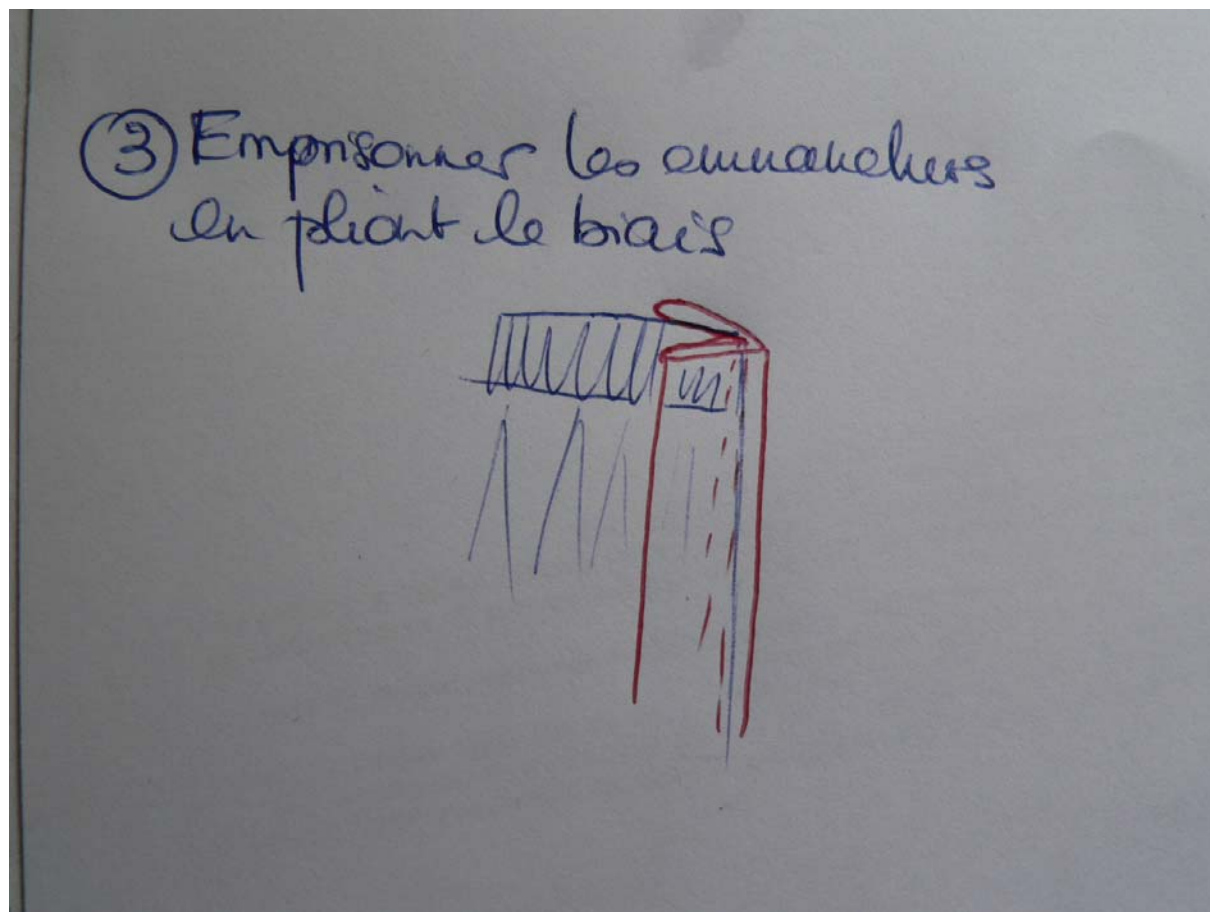 ③ Emprisonner les emmanchures
en pliant le biais